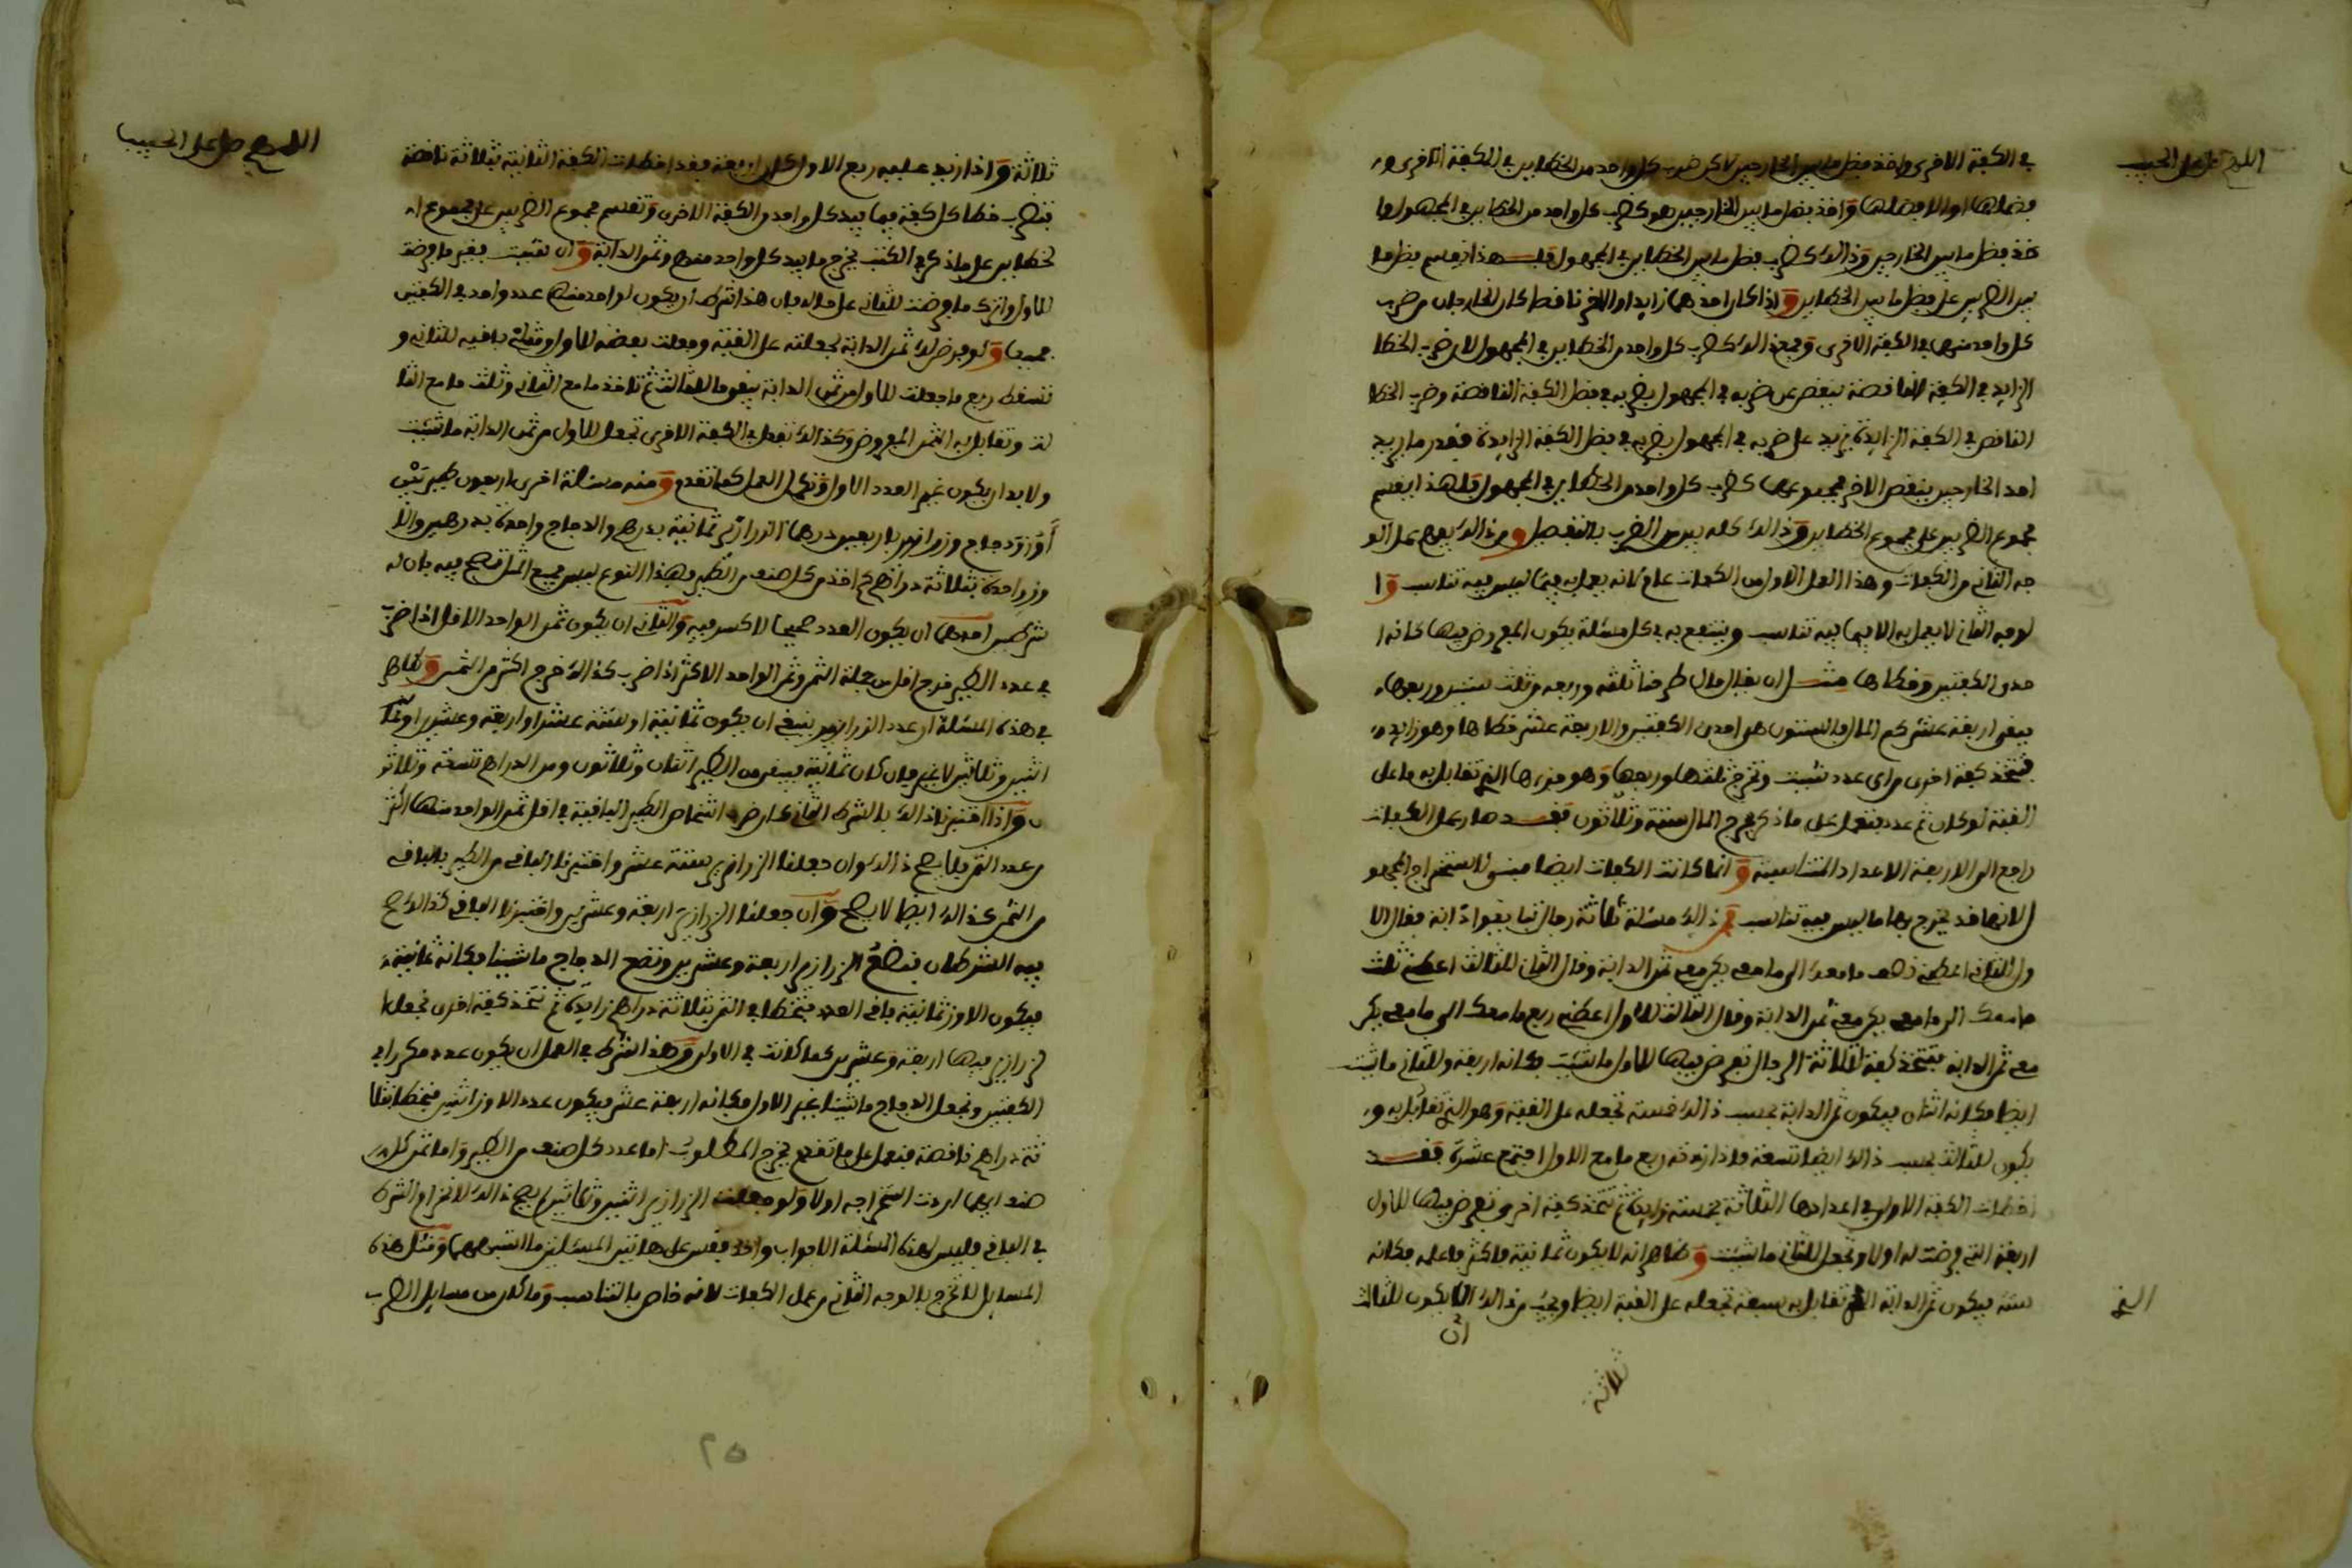 اللهم صل على الحبيب
في الكفة الاخرى واخذ فضل ما بين الخارجين لاكن ضرب كل واحد من الخطأين في الكفة الاخرى و
فضلها او الا فضلها واخذ فضل ما بين الخارجين هو كضرب كل واحد من الخطأين في المجهول وا
خذ فضل ما بين الخارجين وذالك كضرب فضل ما بين الخطأين في المجهول فلهذا يقسم فضل ما
بين الضربين على فضل ما بين الخطأين واذا كان احدهما زايدا والاخر ناقصا كان الخارجان من ضرب
كل واحد منهما في الكفة الاخرى وجمع ذالك كضرب كل واحد من الخطأين في المجهول لان ضرب الخطا
الزايد في الكفة الناقصة ينقص عن ضربه في المجهول بضربه في فضل الكفة الناقصة وضرب الخطا
الناقص في الكفة الزايدة يزيد على ضربه في المجهول بضربه في فضل الكفة الزايدة فقدر ما يزيد
احد الخارجين ينقص الاخر فمجموعهما كضرب كل واحد من الخطأين في المجهول فلهذا يقسم
مجموع الضربين على مجموع الخطأين وذالك كله يبين من الضرب بالتفصيل ومن ذالك يفهم عمل الو
جه الثاني من الكفات وهذا العمل الاول من الكفات عام لانه يعمل به فيما ليس فيه تناسب وا
لوجه الثاني لا يعمل به الا فيما فيه تناسب وينتفع به في كل مسئلة يكون المفروض فيها كانه ا
حدى الكفتين وخطاها مثل ان يقال مال طرحنا ثلثه وربعه من ثلث ستين وربعها
فبقى اربعة عشر كم المال فالستون هى احدى الكفتين والاربعة عشر خطاها وهو زايد
فتتخذ كفة اخرى من اى عدد شئت وتخرج ثلثها وربعها وهو جزءها الذي تقابل به ما على
القبة لو كان ثم عدد فتعمل على ما ذكر يخرج المال ستة وثلاثون فقد صار عمل الكفات
راجع الى الاربعة الاعداد المتناسبة وانما كانت الكفات ايضا مبنى لاستخراج المجهو
ل لانها قد يخرج بها ما ليس فيه تناسب فمن ذالك مسئلة ثلاثة رجال تبايعوا دابة فقال الا
ول للثاني اعطني نصف ما معك الى ما معي يكن معي ثمن الدابة وقال الثاني للثالث اعطني ثلث
ما معك الى ما معي يكن معي ثمن الدابة وقال الثالث للاول اعطني ربع ما معك الى ما معي يكن
معي ثمن الدابة فتتخذ كفة لثلاثة الرجال تفرض فيها للاول ما شئت وكانه اربعة وللثاني ما شئت
ايضا فكانه اثنان فيكون ثمن الدابة بحسب ذالك خمسة تجعله على القبة وهو الذي تقابل به و
يكون للثالث بحسب ذالك ايضا تسعة فاذا زدته ربع ما مع الاول اجتمع عشرة فقد
اخطات الكفة الاولى في اعدادها الثلاثة بخمسة زايدة ثم تتخذ كفة اخرى تفرض فيها للاول
اربعة التي فرضت له اولا وتجعل للثاني ما شئت وظاهر انه لا يكون ثمانية فاكثر فاعلمه فكانه
ستة فيكون ثمن الدابة الذي تقابل به سبعة تجعله على القبة ايضا ويجب من ذالك ان يكون للثالث
ان
الذي
ثلاثة
اللهم صل على الحبيب
ثلاثة واذا زيد عليه ربع الاول كان اربعة فقد اخطات الكفة الثانية بثلاثة ناقصة
فتضرب خطا كل كفة فيما بيد كل واحد من الكفة الاخرى وتقسم مجموع الضربين على مجموع ا
لخطأين على ما ذكر في الكتب يخرج ما بيد كل واحد منهم وثمن الدابة وان شئت بغير ما فرضت
للاول واترك ما فرضت للثاني على حاله فان هذا شرط ان يكون لواحد منهما عدد واحد في الكفتين
جميعا ولو فرض لك ثمن الدابة لجعلته على القبة وجعلت بعضه للاول ومثلى باقيه للثاني و
تسقط ربع ما جعلت للاول من ثمن الدابة يبقى ما للثالث ثم تاخذ ما مع الثاني وثلث ما مع الثا
لث وتقابل به الثمن المفروض وكذالك تفعل في الكفة الاخرى تجعل للاول من ثمن الدابة ما شئت
ولا بد ان يكون غير العدد الاول وتكمل العمل كما تقدم ومنه مسئلة اخرى اربعون طيرا بين
اوز ودجاج وزرازير باربعين درهما الزرازر ثمانية بدرهم والدجاج واحدة بدرهمين والا
وز واحدة بثلاثة دراهم كم اخذ من كل صنف من الطير وهذا النوع ليس جميع المثل تصح فيه بان له
شرطين احدهما ان يكون العدد صحيحا لا كسر فيه والثاني ان يكون ثمن الواحد الاقل اذا ضرب
في عدد الطير خرج اقل من جملة الثمن وثمن الواحد الاكثر اذا ضرب كذالك خرج اكثر من الثمن وظاهر
في هذه المسئلة ان عدد الزرازير ينبغي ان يكون ثمانية او ستة عشر او اربعة وعشرين او
اثنين وثلاثين لا غير فان كان ثمانية فيبقى من الطير اثنان وثلاثون ومن الدراهم تسعة وثلاثو
ن واذا اختبرنا ذالك بالشرط الثاني كان ضرب اشخاص الطير الباقية في اقل ثمن الواحد منها اكثر
من عدد الثمن فلا يصح ذالك وان جعلنا الزرازير ستة عشر واختبرنا الباقي من الطير بالباقي
من الثمن كذالك ايضا لا يصح وان جعلنا الزرازير اربعة وعشرين واختبرنا الباقي كذالك صح
فيه الشرطان فنضع الزرازير اربعة وعشرين ونضع الدجاج ما شئنا فكانه ثمانية
فيكون الاوز ثمانية باقي العدد فتخطا في الثمن بثلاثة دراهم زايدة ثم نتخذ كفة اخرى نجعل ا
لزرازير فيها اربعة وعشرين كما كانت في الاولى وهذا شرط في العمل ان يكون عدد مكررا في
الكفتين ونجعل الدجاج ما شئنا غير الاول فكانه اربعة عشر فيكون عدد الاوز اثنين فتخطا بثلا
ثة دراهم ناقصة فتعمل على ما تقدم يخرج المطلوب اما عدد كل صنف من الطير واما ثمن كل
صنف ايهما اردت استخراجه اولا ولو جعلت الزرازير اثنين وثلاثين لم يصح ذالك لانخرام الشرط
في الباقي فليس لهذه المسئلة الا جواب واحد فقس على هاتين المسئلتين ما اشبههما ومثل هذه
المسايل لا تخرج بالوجه الثاني من عمل الكفات لانه خاص بالتناسب وما كان من مسايل الضرب
٢٥